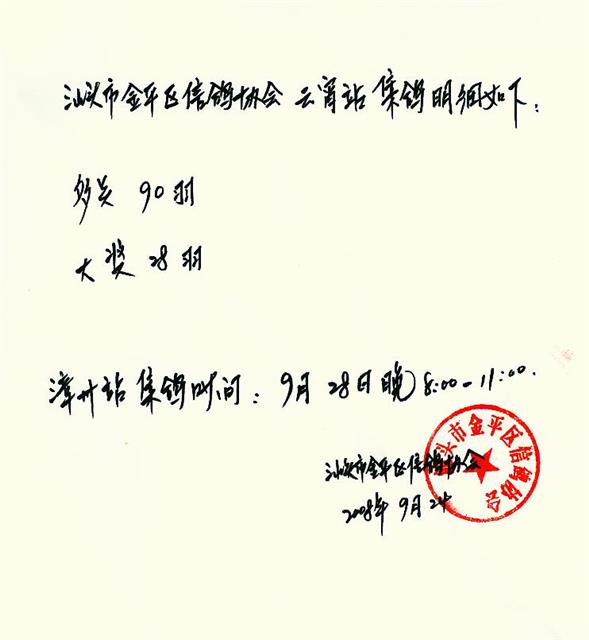 汕头市金平区信鸽协会 云霄站 集鸽明细如下:
多关 90羽
大奖 28羽
漳州站 集鸽时间: 9月28日晚8:00-11:00.
汕头市金平区信鸽协会
2008年9月24
汕头市金平区信鸽协会